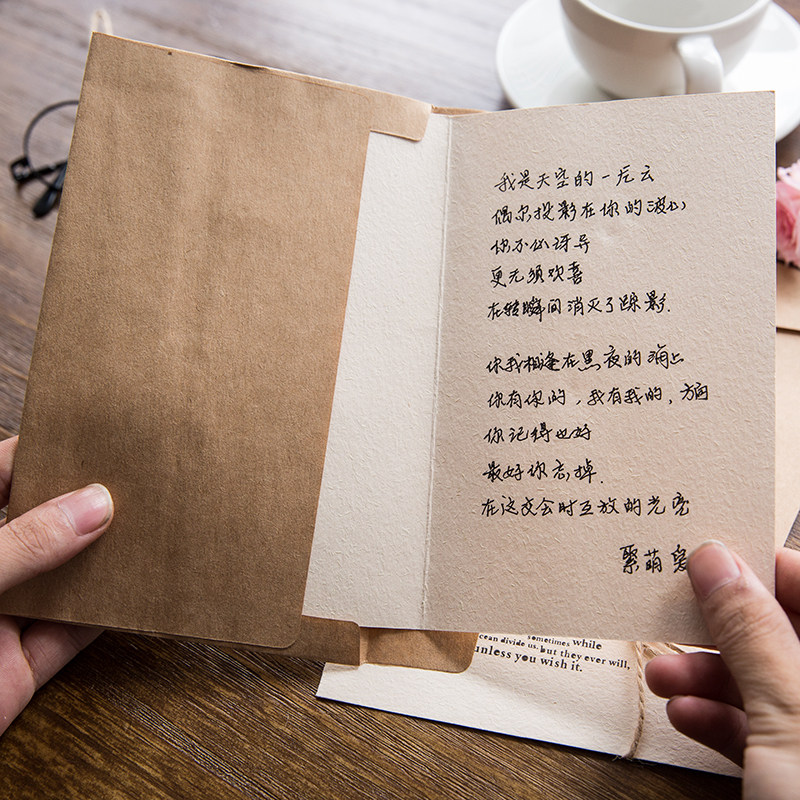 我是天空的一片云
偶尔投影在你的波心
你不必讶异
更无须欢喜
在转瞬间消灭了踪影.
你我相逢在黑夜的海上
你有你的，我有我的，方向
你记得也好
最好你忘掉.
在这交会时互放的光亮
聚萌
sometimes while
cean divide us, but they ever will,
unless you wish it.